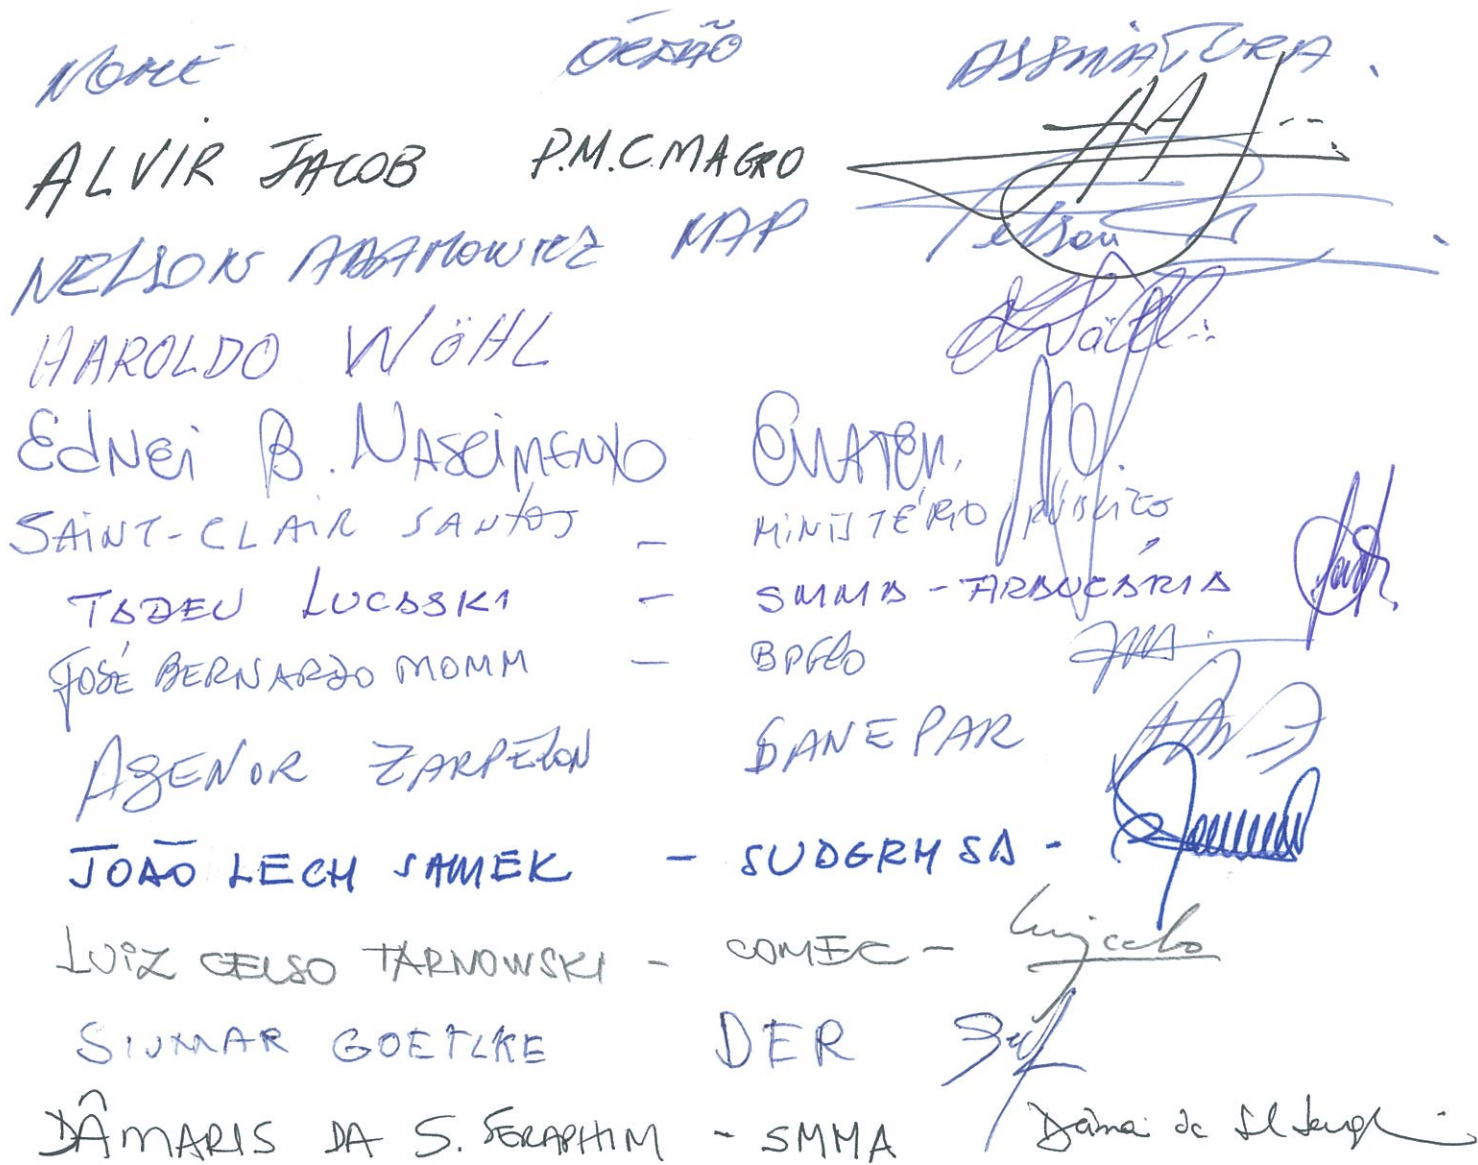 NOME ÓRGÃO ASSINATURA.
ALVIR JACOB P.M.C.MAGRO
NELSON ABRAMOWICZ Nelson
HAROLDO WÖHL Wöhl
EdNei B. NAScimENtO EMATER.
SAiNT-CLAiR SANtOS - MiNiSTÉRIO PÚBLICO
TADEU LUCASSKI - SMMA - ARAUCÁRIA
JOSÉ BERNARDO MOMM -
AGENOR ZARPELON SANEPAR
JOÃO LECH SAMEK - SUDERHSA -
LUiZ CELSO TARNOWSKI - COMEC - Luizcelso
GOETZKE DER
DÂMARIS DA S. SERAPHIM - SMMA